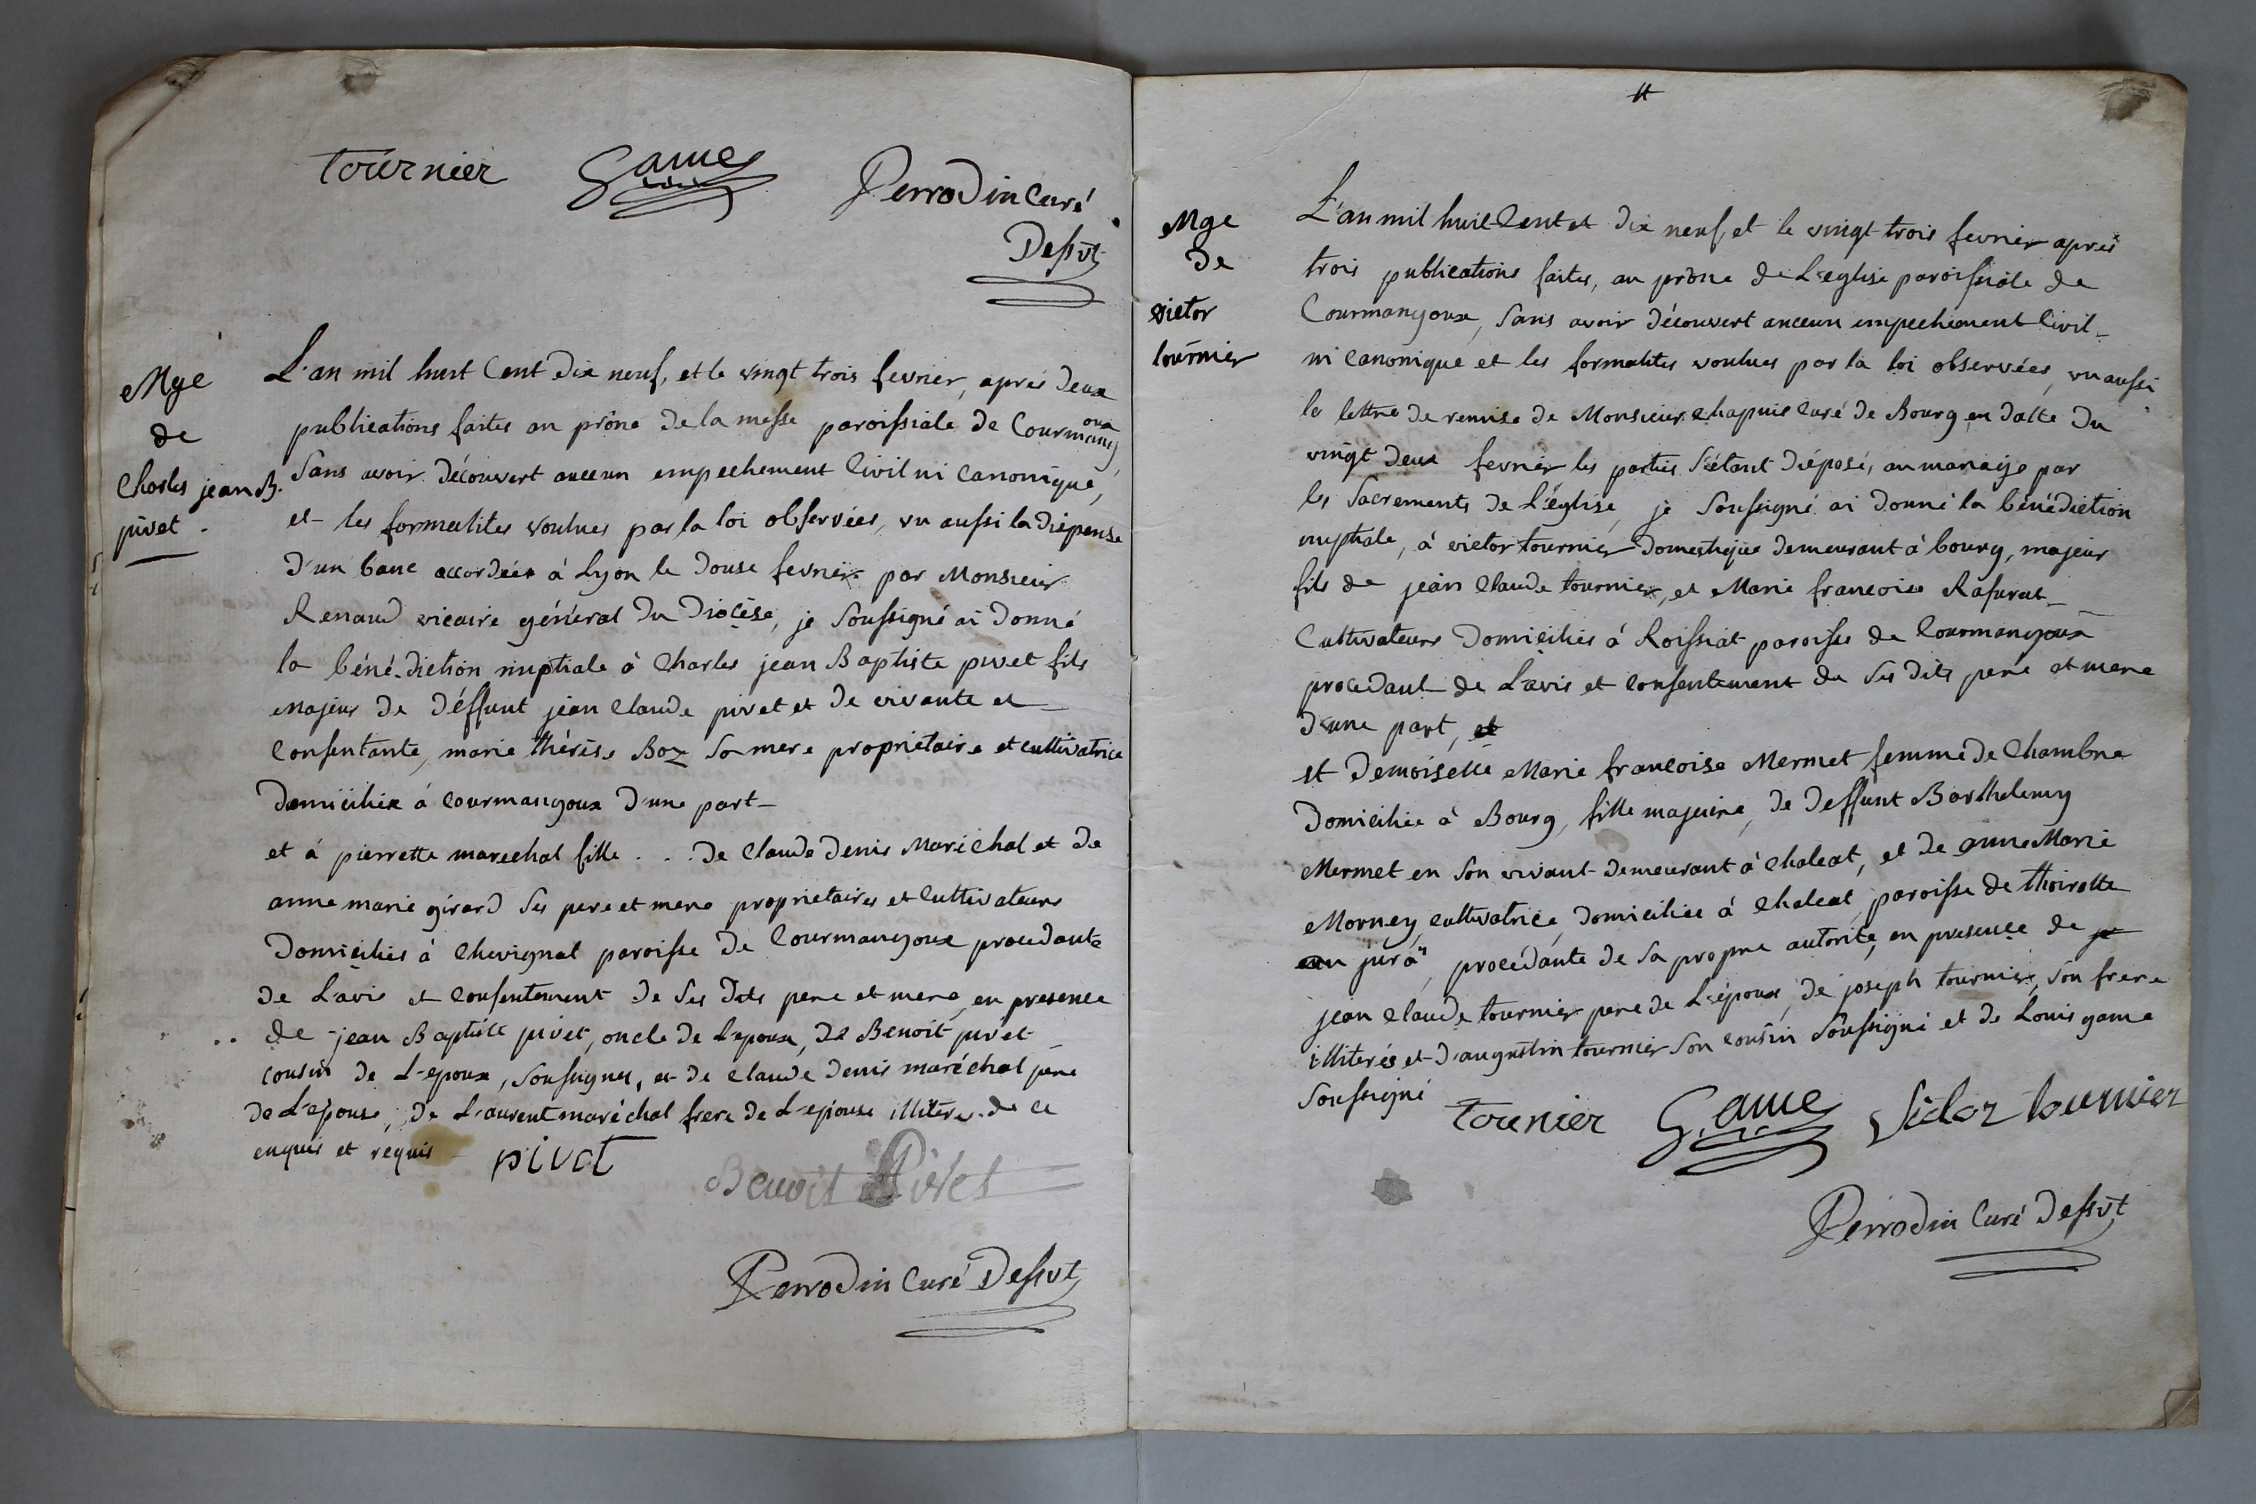 tournier Game Perrodin Curé
Dessvt
Mge
de
Charles jean B.
pivet .
L'an mil huit Cent dix neuf, et le vingt trois fevrier, aprés deux
publications faites au prône de la messe paroissiale de Courmangoux,
Sans avoir découvert aucun empechement Civil ni Canonique,
et les formalites voulues par la loi observées, vu aussi la dispense
d'un banc accordée à Lyon le douse fevrier par Monsieur
Renaud vicaire général du Diocèse, je Soussigné ai donné
la bénédiction nuptiale à Charles jean Baptiste pivet fils
majeur de déffunt jean Claude pivet et de vivante et
Consentante, marie thérèse Boz Sa mere propriétaire et cultivatrice
domiciliée à Courmangoux d'une part
et à pierrette marechal fille . . . de Claude denis Maréchal et de
anne marie girard Ses pere et mere proprietaires et Cultivateurs
domiciliés à Chevignat paroisse de Courmangoux procedante
de L'avis et Consentement de Ses dits pere et mere, en presence
de jean Baptiste pivet, oncle de L'epoux, de Benoit pivet
cousin de L'epoux, Soussignes, et de Claude denis maréchal pere
de L'épouse, de Laurent maréchal frere de L'epouse illitéres de ce
enquis et requis pivet
Benoit Pivet
Perrodin Curé Dessvt
Mge
de
victor
tournier
L'an mil huit Cent et dix neuf, et le vingt trois fevrier aprés
trois publications faites, au prône de L'eglise paroissiale de
Courmangoux, Sans avoir découvert aucun empechement Civil
ni Canonique et les formalites voulues par la loi observées, vu aussi
la lettre de remise de Monsieur Chapuis Curé de Bourg en datte du
vingt deux fevrier les parties S'étant disposé, au mariage par
les Sacrements de L'église, je Soussigné ai donné la bénédiction
nuptiale, à victor tournier domestique demeurant à bourg, majeur
fils de jean Claude tournier, et Marie francoise Rafurat
Cultivateurs domiciliés à Roissiat paroisse de Courmangoux
procedant de L'avis et Consentement de Ses dits pere et mere
d'une part, et
et demoiselle Marie francoise Mermet femme de Chambre
domiciliée à Bourg, fille majeure, de deffunt Barthelemy
Mermet en Son vivant demeurant à Chaleat, et de anne Marie
Morney, cultivatrice, domiciliée à Chaleat, paroisse de thoirette
au jura", procédante de Sa propre autorité, en presence de
jean Claude tournier pere de L'époux, de joseph tournier, Son frere
illiterés et d'augustin tournier Son cousin Soussigné et de Louis game
Soussigné tournier Game victor tournier
Perrodin Curé Dessvt